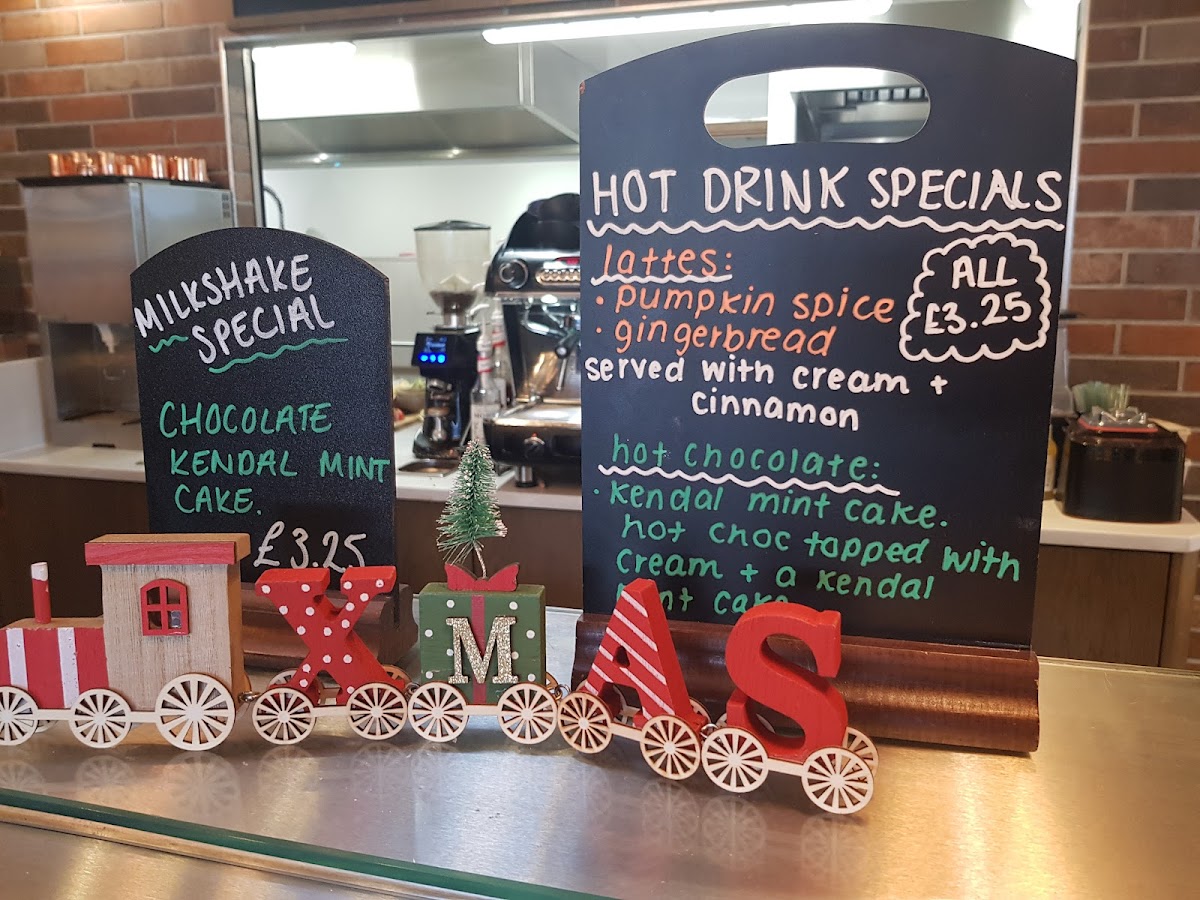 MILKSHAKE
SPECIAL
CHOCOLATE
KENDAL MINT
CAKE.
£3.25
HOT DRINK SPECIALS
lattes:
• pumpkin spice
• gingerbread
ALL
£3.25
served with cream +
cinnamon
hot chocolate:
• kendal mint cake.
hot choc topped with
cream + a kendal
mint cake
XMAS